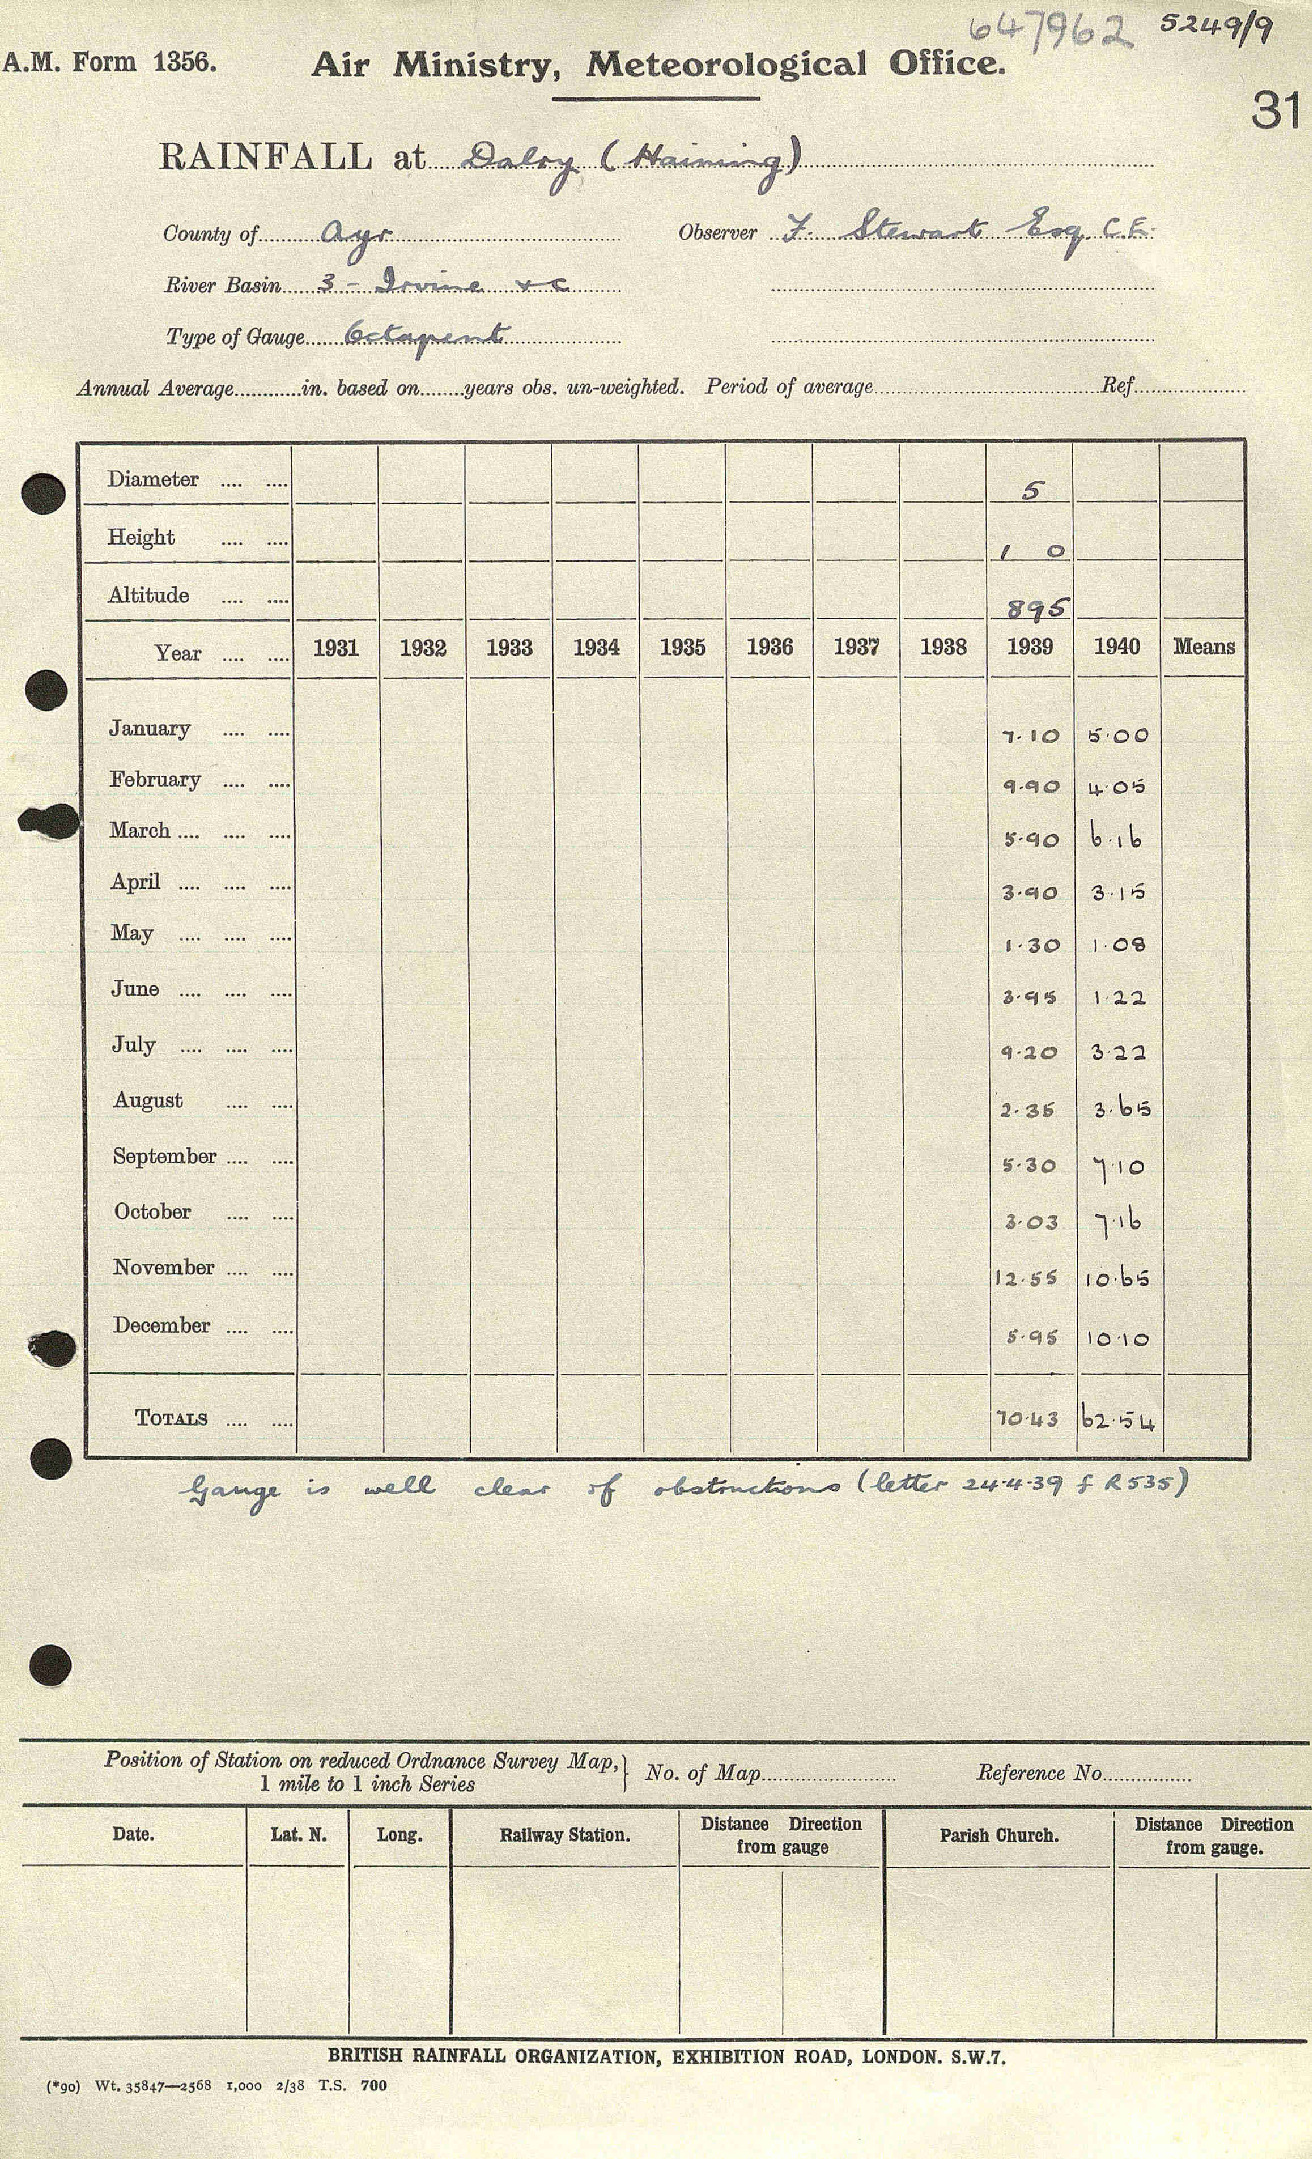 647962 5249/9
A.M. Form 1356. Air Ministry, Meteorological Office.
31
RAINFALL at Dalry (Haining)
County of Ayr Observer F. Stewart Esq C.E.
River Basin 3 - Irvine &c
Type of Gauge Octapent
Annual Average............in. based on........years obs. un-weighted. Period of average............ Ref............
Diameter .... .... 5
Height .... .... 1 0
Altitude .... .... 895
Year .... .... 1931 1932 1933 1934 1935 1936 1937 1938 1939 1940 Means
January .... .... 7.10 5.00
February .... .... 9.90 4.05
March .... .... .... 5.90 6.16
April .... .... .... 3.90 3.15
May .... .... .... 1.30 1.08
June .... .... .... 3.95 1.22
July .... .... .... 9.20 3.22
August .... .... 2.35 3.65
September .... .... 5.30 7.10
October .... .... 3.03 7.16
November .... .... 12.55 10.65
December .... .... 5.95 10.10
TOTALS .... .... 70.43 62.54
Gauge is well clear of obstructions (letter 24.4.39 f R535)
Position of Station on reduced Ordnance Survey Map, } No. of Map............ Reference No............
1 mile to 1 inch Series
Date. Lat. N. Long. Railway Station. Distance Direction from gauge Parish Church. Distance Direction from gauge.
BRITISH RAINFALL ORGANIZATION, EXHIBITION ROAD, LONDON. S.W.7.
(*90) Wt. 35847—2568 1,000 2/38 T.S. 700